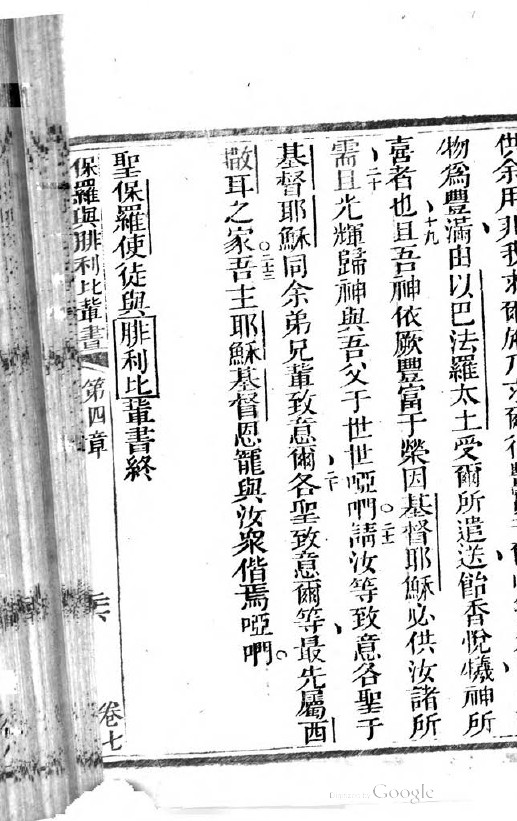 供余用非我求爾施乃求爾得豐實于爾
物爲豐滿由以巴法羅太土受爾所遣送飴香悅犧神所
十九
喜者也且吾神依厥豐富于榮因基督耶穌必供汝諸所
二十
二一
需且光輝歸神與吾父于世世啞們請汝等致意各聖于
二十
基督耶穌同余弟兄輩致意爾各聖致意爾等最先屬西
二三
撒耳之家吾主耶穌基督恩寵與汝衆偕焉啞們
聖保羅使徒與腓利比輩書終
保羅與腓利比輩書 第四章 卷七
Digitized by Google